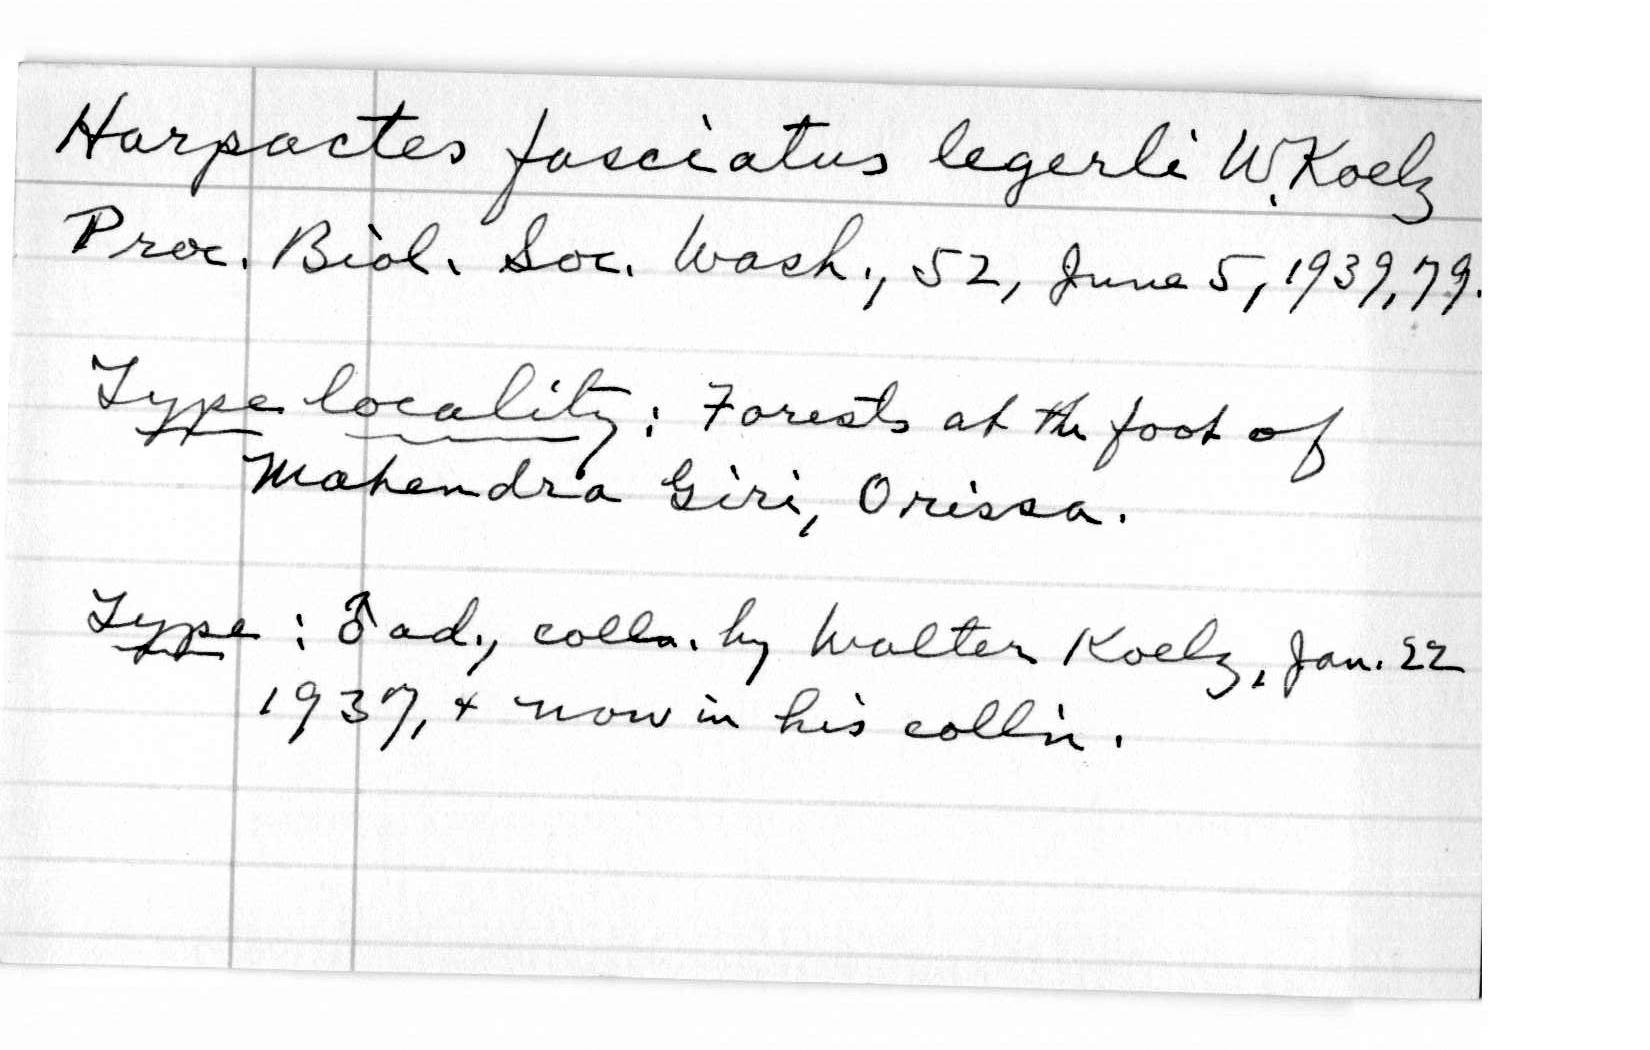 Harpactes fasciatus legerli W. Koelz
Proc. Biol. Soc. Wash., 52, June 5, 1939, 79.
Type locality: Forests at the foot of
Mahendra Giri, Orissa.
Type: ♂ ad., colln. by Walter Koelz, Jan. 22
1937, + now in his coll'n.